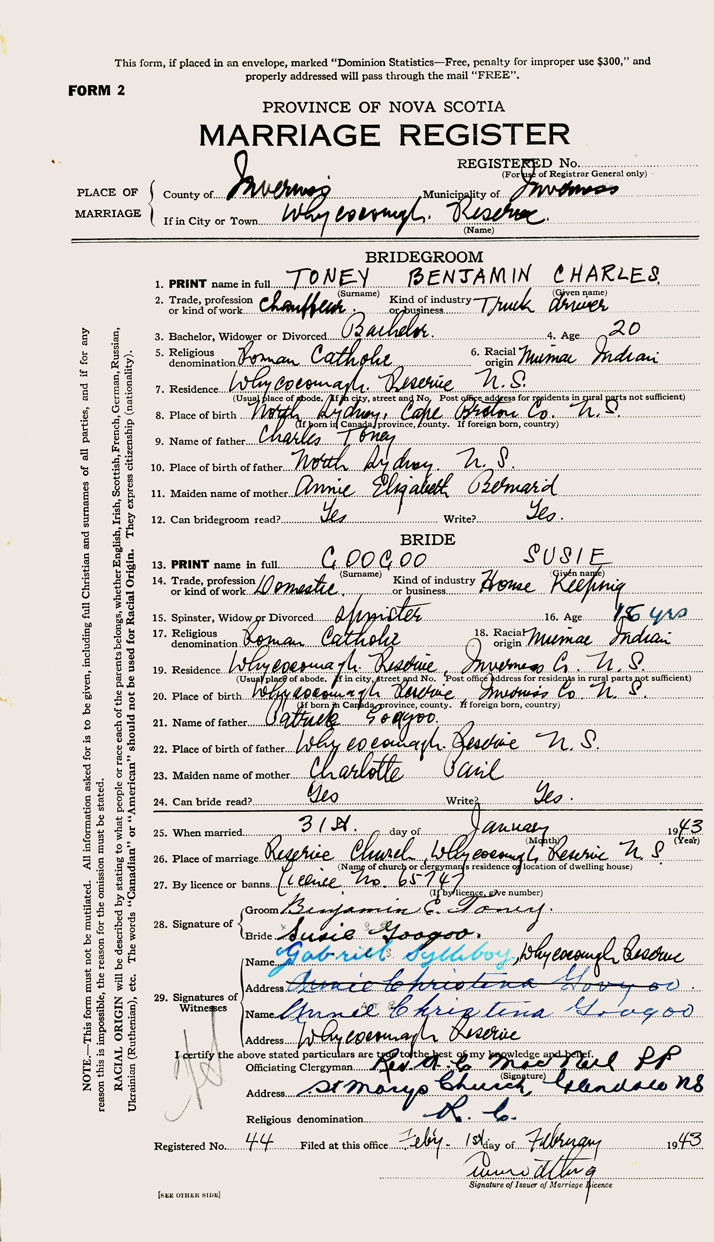 This form, if placed in an envelope, marked "Dominion Statistics—Free, penalty for improper use $300," and
properly addressed will pass through the mail "FREE".
FORM 2
PROVINCE OF NOVA SCOTIA
MARRIAGE REGISTER
REGISTERED No.
(For use of Registrar General only)
PLACE OF MARRIAGE
County of Inverness Municipality of Inverness
If in City or Town Whycocomagh. Reserve.
(Name)
BRIDEGROOM
1. PRINT name in full TONEY BENJAMIN CHARLES.
(Surname) (Given name)
2. Trade, profession or kind of work Chauffeur. Kind of industry or business Truck driver
3. Bachelor, Widower or Divorced Bachelor. 4. Age 20
5. Religious denomination Roman Catholic 6. Racial origin Micmac Indian
7. Residence Whycocomagh. Reserve N.S.
(Usual place of abode. If in city, street and No. Post office address for residents in rural parts not sufficient)
8. Place of birth North Sydney, Cape Breton Co. N.S.
(If born in Canada, province, county. If foreign born, country)
9. Name of father Charles Toney
10. Place of birth of father North Sydney. N.S.
11. Maiden name of mother Annie Elizabeth Bernard
12. Can bridegroom read? Yes Write? Yes.
BRIDE
13. PRINT name in full GOOGOO SUSIE
(Surname) (Given name)
14. Trade, profession or kind of work Domestic Kind of industry or business House Keeping
15. Spinster, Widow or Divorced Spinster 16. Age yrs
17. Religious denomination Roman Catholic 18. Racial origin Micmac Indian
19. Residence Whycocomagh. Reserve, Inverness Co. N.S.
(Usual place of abode. If in city, street and No. Post office address for residents in rural parts not sufficient)
20. Place of birth Whycocomagh Reserve, Inverness Co N.S.
(If born in Canada, province, county. If foreign born, country)
21. Name of father Patrick Googoo.
22. Place of birth of father Whycocomagh. Reserve N.S.
23. Maiden name of mother Charlotte Paul
24. Can bride read? Yes Write? Yes.
25. When married 31st. day of January 1943
(Month) (Year)
26. Place of marriage Reserve Church, Whycocomagh Reserve N.S.
(Name of church or clergyman's residence or location of dwelling house)
27. By licence or banns Licence No. 65747
(If by licence, give number)
28. Signature of
Groom Benjamin C. Toney.
Bride Susie Googoo.
29. Signatures of Witnesses
Name Gabriel Sylliboy, Whycocomagh Reserve
Address Annie Christina Googoo.
Name Annie Christina Googoo
Address Whycocomagh Reserve
I certify the above stated particulars are true to the best of my knowledge and belief.
Officiating Clergyman Rev. A. C. MacNeil PP
(Signature)
Address St Marys Church, Glendale NS
Religious denomination R. C.
Registered No. 44 Filed at this office Feby- 1st day of February 1943
Signature of Issuer of Marriage Licence
[SEE OTHER SIDE]
NOTE.—This form must not be mutilated. All information asked for is to be given, including full Christian and surnames of all parties, and if for any
reason this is impossible, the reason for the omission must be stated.
RACIAL ORIGIN will be described by stating to what people or race each of the parents belongs, whether English, Irish, Scottish, French, German, Russian,
Ukrainian (Ruthenian), etc. The words "Canadian" or "American" should not be used for Racial Origin. They express citizenship (nationality).